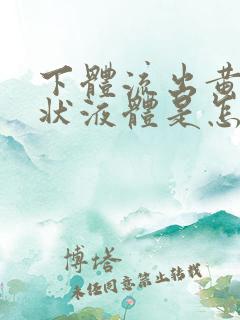 下體流出黄
狀液體是怎
博塔
未经同意禁止转载